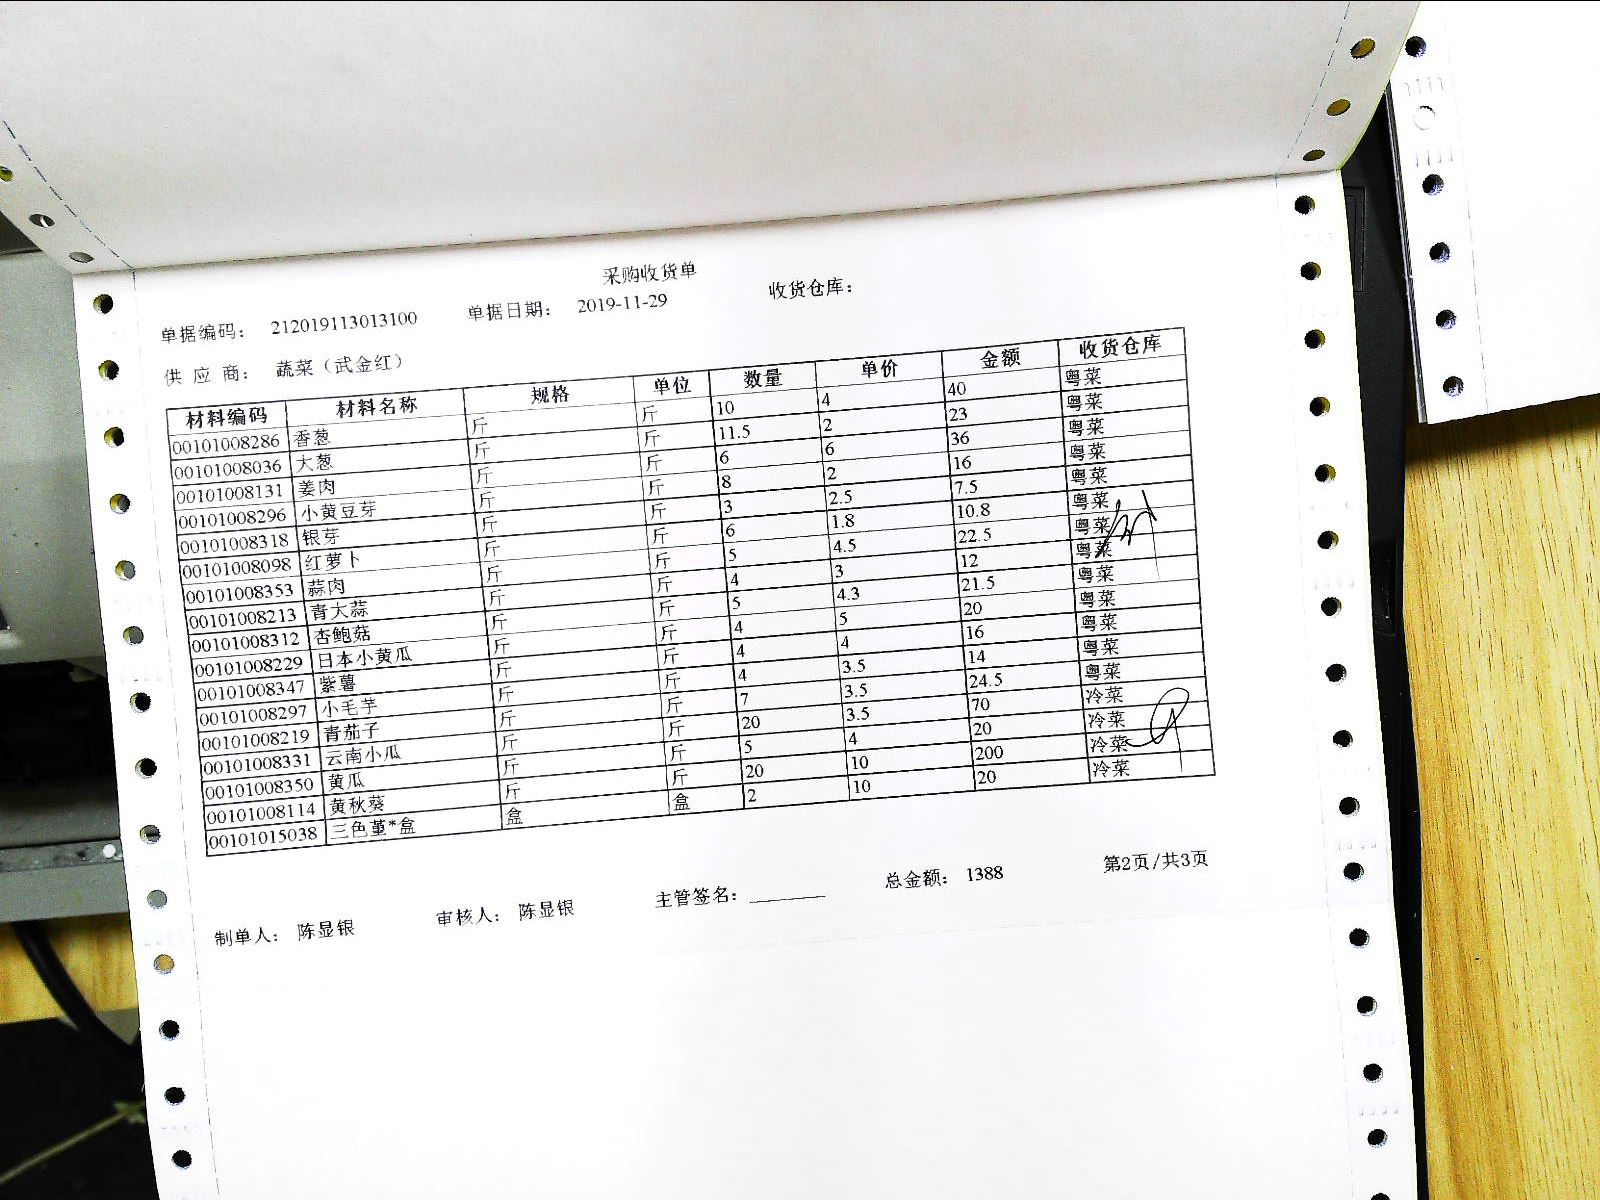 采购收货单
单据编码： 212019113013100 单据日期： 2019-11-29 收货仓库：
供 应 商： 蔬菜（武金红）
材料编码 材料名称 规格 单位 数量 单价 金额 收货仓库
00101008286 香葱 斤 斤 10 4 40 粤菜
00101008036 大葱 斤 斤 11.5 2 23 粤菜
00101008131 姜肉 斤 斤 6 6 36 粤菜
00101008296 小黄豆芽 斤 斤 8 2 16 粤菜
00101008318 银芽 斤 斤 3 2.5 7.5 粤菜
00101008098 红萝卜 斤 斤 6 1.8 10.8 粤菜
00101008353 蒜肉 斤 斤 5 4.5 22.5 粤菜
00101008213 青大蒜 斤 斤 4 3 12 粤菜
00101008312 杏鲍菇 斤 斤 5 4.3 21.5 粤菜
00101008229 日本小黄瓜 斤 斤 4 5 20 粤菜
00101008347 紫薯 斤 斤 4 4 16 粤菜
00101008297 小毛芋 斤 斤 4 3.5 14 粤菜
00101008219 青茄子 斤 斤 7 3.5 24.5 粤菜
00101008331 云南小瓜 斤 斤 20 3.5 70 冷菜
00101008350 黄瓜 斤 斤 5 4 20 冷菜
00101008114 黄秋葵 斤 斤 20 10 200 冷菜
00101015038 三色堇*盒 盒 盒 2 10 20 冷菜
制单人： 陈显银 审核人： 陈显银 主管签名：________ 总金额： 1388 第2页/共3页